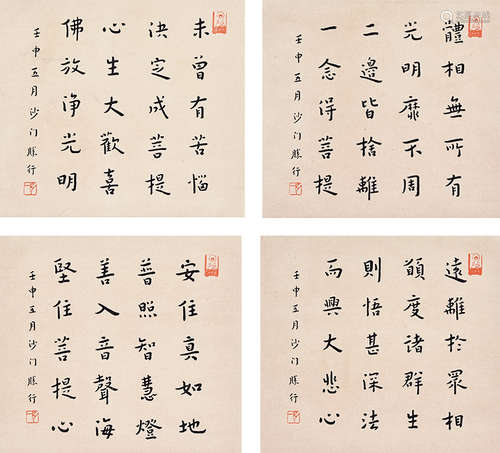 未曾有苦惱
決定成菩提
心生大歡喜
佛放浄光明
壬申五月沙门勝行
體相無所有
光明靡不周
二邊皆捨離
一念得菩提
壬申五月沙门勝行
安住真如地
普照智慧燈
善入音聲海
堅住菩提心
壬申五月沙门勝行
遠離於眾相
願度諸群生
則悟甚深法
而興大悲心
壬申五月沙门勝行